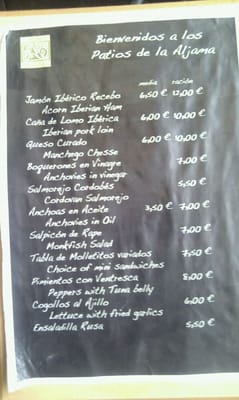 Bienvenidos a los
Patios de la Aljama
media ración
Jamón Ibérico Recebo 6,50 € 12,00 €
Acorn Iberian Ham
Caña de Lomo Ibérica 6,00 € 10,00 €
Iberian pork loin
Queso Curado 6,00 € 10,00 €
Manchego Chesse
Boquerones en Vinagre 7,00 €
Anchovies in vinegar
Salmorejo Cordobés 5,50 €
Cordovan Salmorejo
Anchoas en Aceite 3,50 € 7,00 €
Anchovies in Oil
Salpicón de Rape 7,00 €
Monkfish Salad
Tabla de Molletitos variados 7,50 €
Choice of mini sandwiches
Pimientos con Ventresca 8,00 €
Peppers with Tuna belly
Cogollos al Ajillo 6,00 €
Lettuce with fried garlics
Ensaladilla Rusa 5,50 €